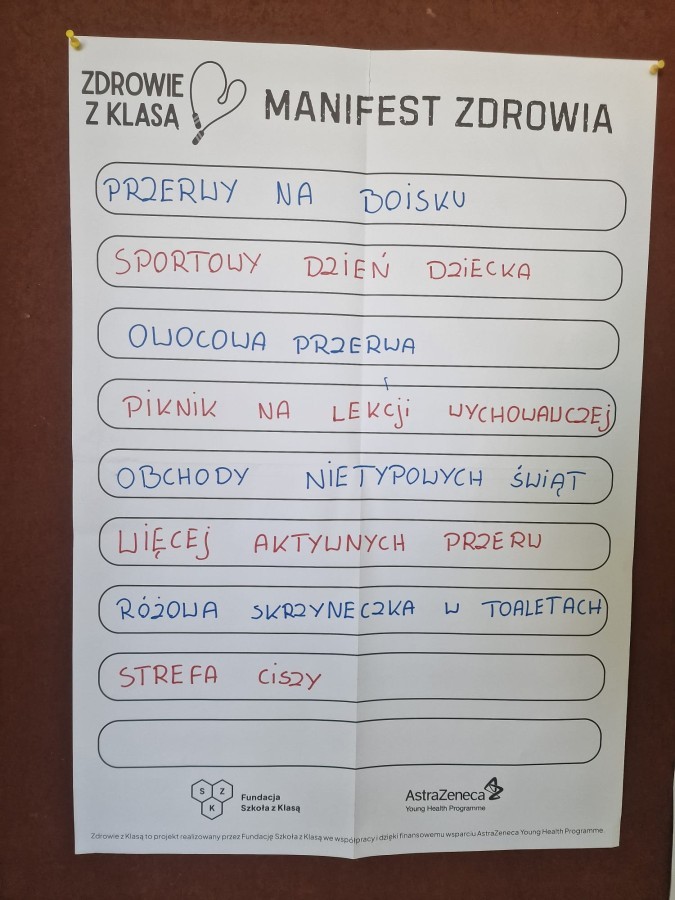 ZDROWIE
Z KLASĄ
MANIFEST ZDROWIA
PRZERWY NA BOISKU
SPORTOWY DZIEŃ DZIECKA
OWOCOWA PRZERWA
PIKNIK NA LEKCJI WYCHOWAWCZEJ
OBCHODY NIETYPOWYCH ŚWIĄT
WIĘCEJ AKTYWNYCH PRZERW
RÓŻOWA SKRZYNECZKA W TOALETACH
STREFA CISZY
S Z
K
Fundacja
Szkoła z Klasą
AstraZeneca
Young Health Programme
Zdrowie z Klasą to projekt realizowany przez Fundację Szkoła z Klasą we współpracy i dzięki finansowemu wsparciu AstraZeneca Young Health Programme.